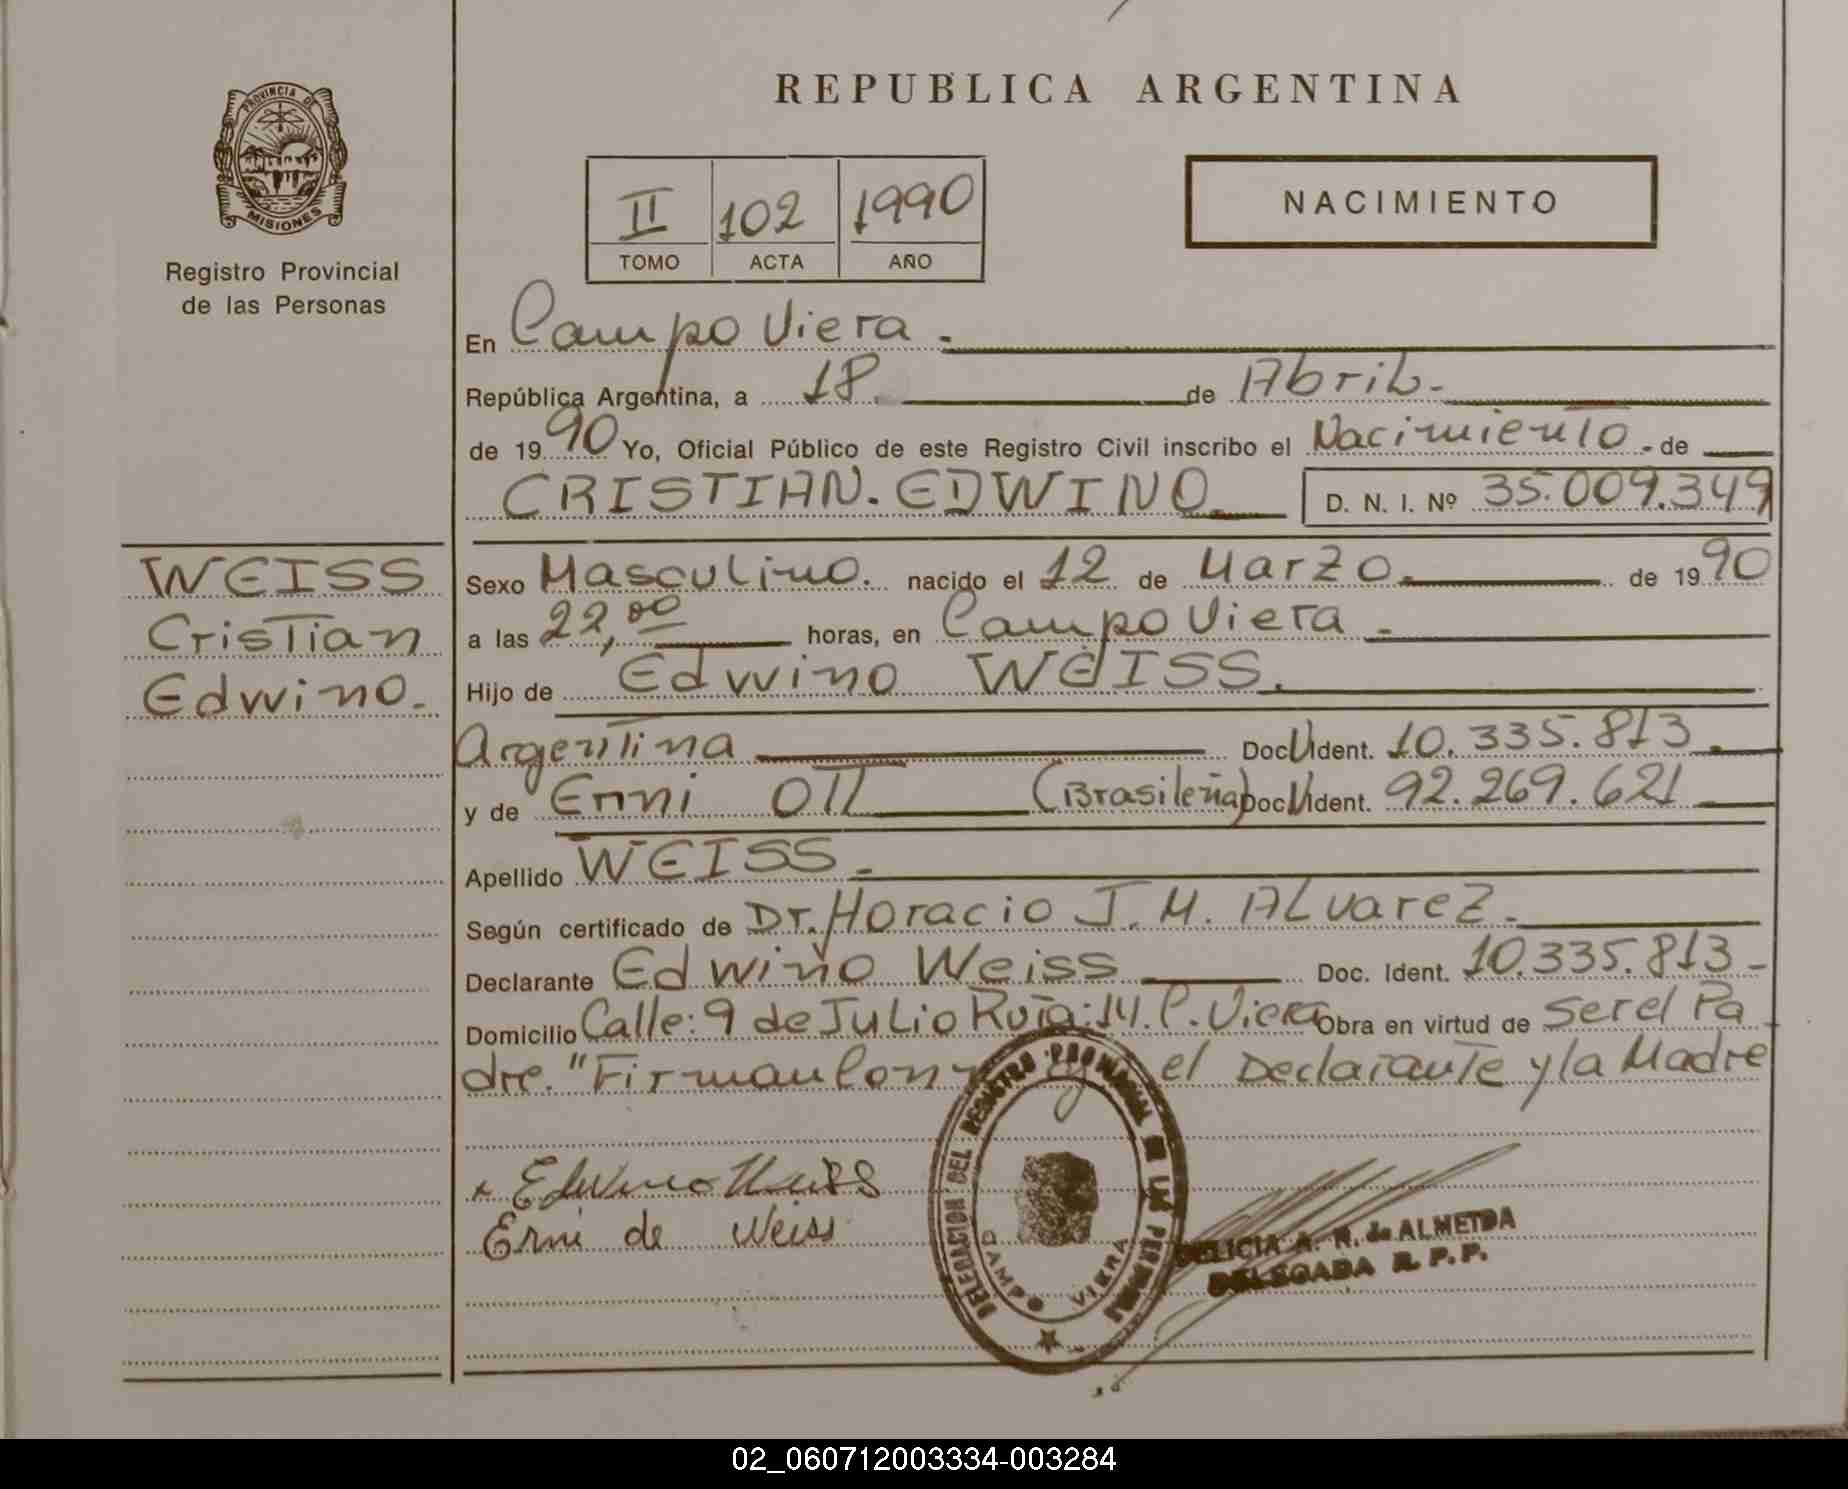 PROVINCIA DE
MISIONES
Registro Provincial
de las Personas
REPUBLICA ARGENTINA
II 102 1990
TOMO ACTA AÑO
NACIMIENTO
En Campo Viera.
República Argentina, a 18 de Abril.
de 1990 Yo, Oficial Público de este Registro Civil inscribo el Nacimiento. de
CRISTIAN. EDWINO. D. N. I. Nº 35.009.349
WEISS
Cristian
Edwino.
Sexo Masculino. nacido el 12 de Marzo. de 1990
a las 22,00 horas, en Campo Viera.
Hijo de Edwino WEISS.
Argentina Doc. Ident. 10.335.813.
y de Erni OTT (Brasileña) Doc. Ident. 92.269.621
Apellido WEISS.
Según certificado de Dr. Horacio J. M. ALvarez.
Declarante Edwino Weiss Doc. Ident. 10.335.813-
Domicilio Calle: 9 de JuLio Ruta: 14. C. Viera Obra en virtud de ser el Pa
dre. "Firman Conmigo el Declarante y la Madre
x Edwino Weiss
Erni de Weiss
DELEGACION DEL REGISTRO PROVINCIAL DE LAS PERSONAS
CAMPO VIERA
DELICIA A. R. de ALMEIDA
DELEGADA R. P. P.
02_060712003334-003284